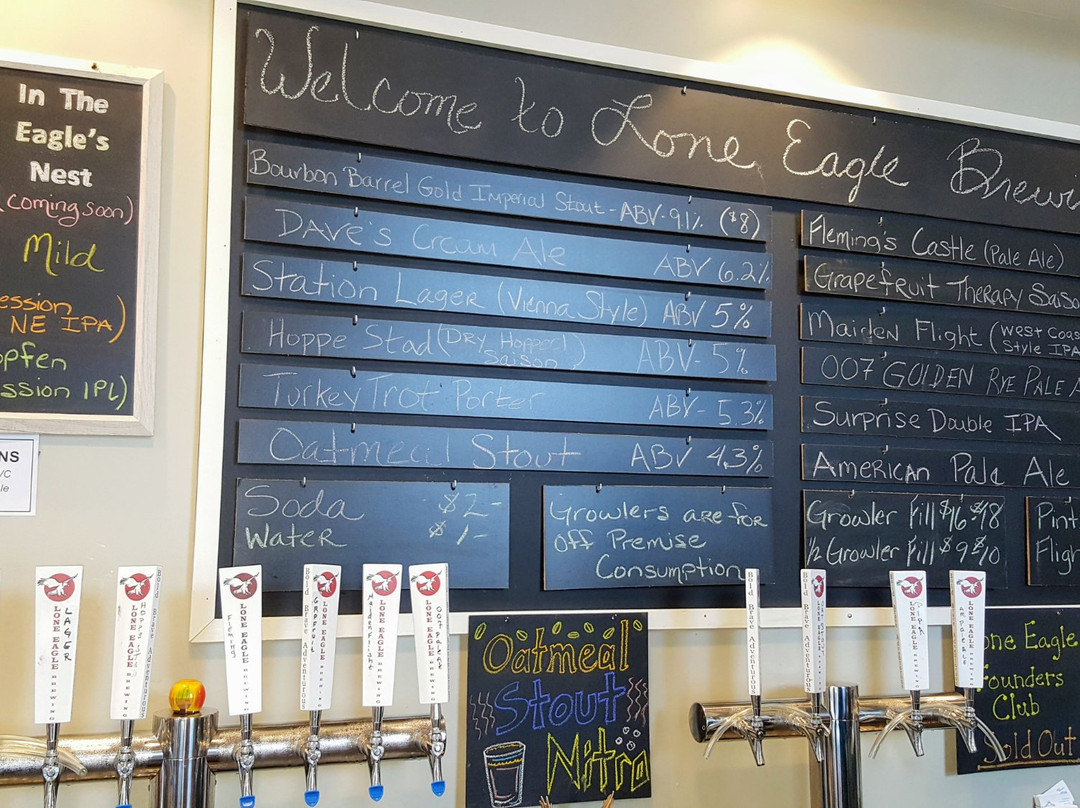 In The
Eagle's
Nest
(coming soon)
Mild
ession
NE IPA)
pfen
ssion IPL)
NS
Welcome to Lone Eagle Brewi
Bourbon Barrel Gold Imperial Stout - ABV-9.1% ($8)
Dave's Cream Ale ABV 6.2%
Station Lager (Vienna Style) ABV 5%
Hoppe Stad (Dry Hopped
Saison) ABV- 5%
Turkey Trot Porter ABV- 5.3%
Oatmeal Stout ABV 4.3%
Soda $2-
Water $1-
Growlers are for
Off Premise
Consumption
Fleming's Castle (Pale Ale)
Grapefruit Therapy Saiso
Maiden Flight (West Coas
Style IPA
007 Golden Rye Pale A
Surprise Double IPA
American Pale Ale
Growler Fill $16-$18
1/2 Growler Fill $9-$10
Pint
Fligh
LONE EAGLE BREWING
LAGER
LONE EAGLE BREWING
Bold Brave Adventurous
LONE EAGLE BREWING
Bold Brave Adventurous
LONE EAGLE BREWING
LONE EAGLE BREWING
Maiden Flight
LONE EAGLE BREWING
007 Pale Ale
Oatmeal
Stout
Nitro
Bold Brave Adventurous
Bold Brave Adventurous
LONE EAGLE BREWING
LONE EAGLE BREWING
one Eagle
ounders
Club
Sold Out